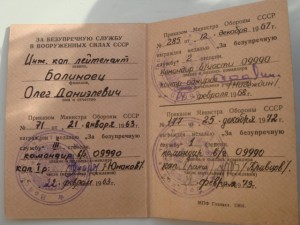 ЗА БЕЗУПРЕЧНУЮ СЛУЖБУ
В ВООРУЖЕННЫХ СИЛАХ СССР
Инж. кап. лейтенант
Балиноец
Олег Даниэлевич
Приказом Министра Обороны СССР
№ 71 от 21 января 1963 г.
награжден медалью „За безупречную
службу“ III степени
командир в/ч 09990
кап. I р.
22 февраля 1963 г.
Приказом Министра Обороны СССР
№ 285 от 12 декабря 1967 г.
награжден медалью „За безупречную
службу“ 2 степени
Командир в/части 09990
февраля 68 г.
Приказом Министра Обороны СССР
№ 177 от 25 декабря 1972 г.
награжден медалью „За безупречную
службу“ 1 степени
в/ч 09990
февраля 73 г.